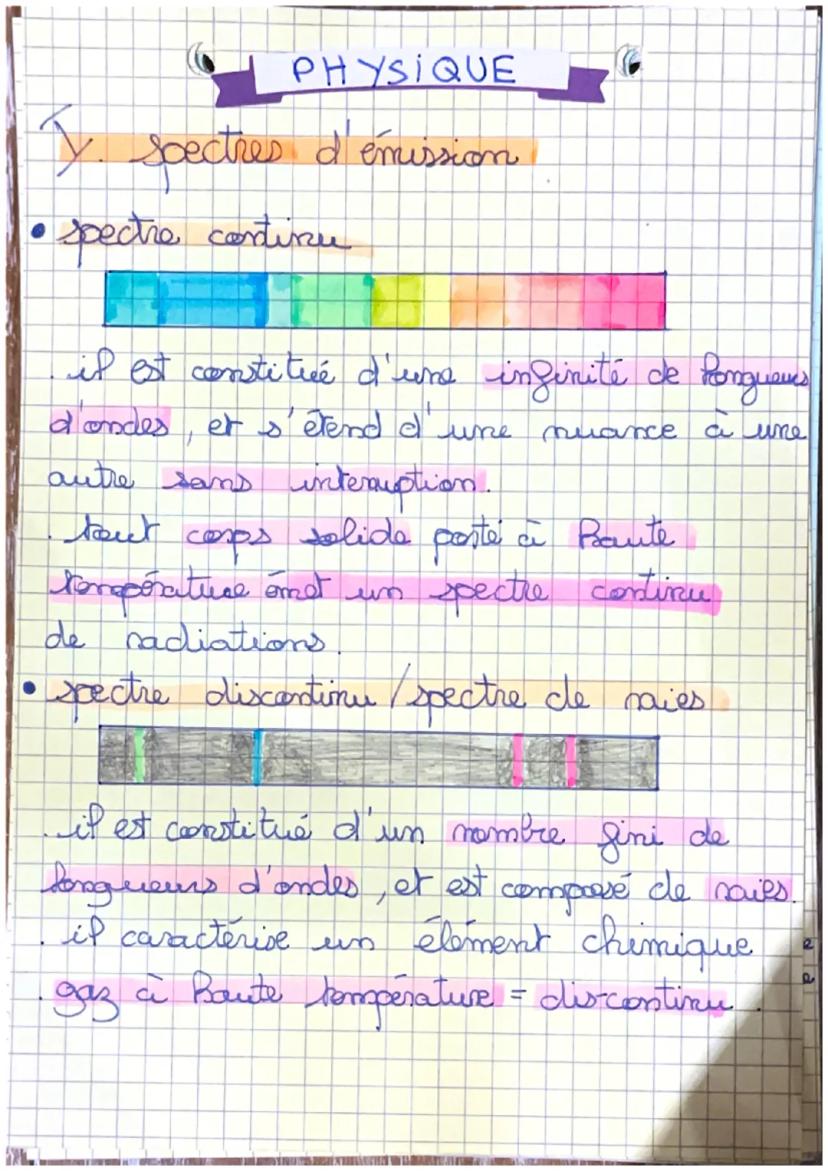 PHYSIQUE
I. spectres d'émission
• spectre continu
. il est constitué d'une infinité de longueurs
d'ondes, et s'étend d'une nuance à une
autre sans interruption.
. tout corps solide porté à haute
température émet un spectre continu
de radiations.
• spectre discontinu / spectre de raies
. il est constitué d'un nombre fini de
longueurs d'ondes, et est composé de raies.
. il caractérise un élément chimique
. gaz à haute température = discontinu.